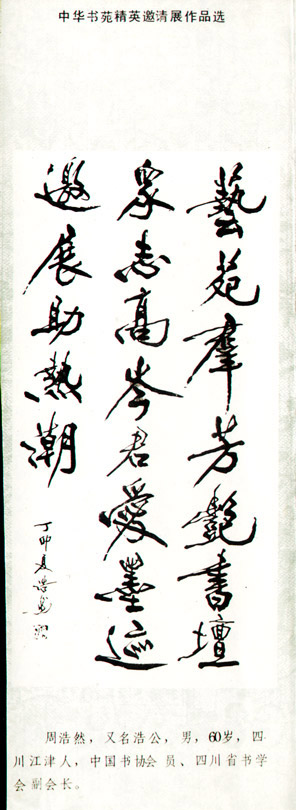 中华书苑精英邀请展作品选
藝苑羣芳艷書壇
眾志高岑君愛墨迹
邀展助熱潮
丁卯夏
周浩然，又名浩公，男，60岁，四
川江津人，中国书协会 员、四川省书学
会副会长。